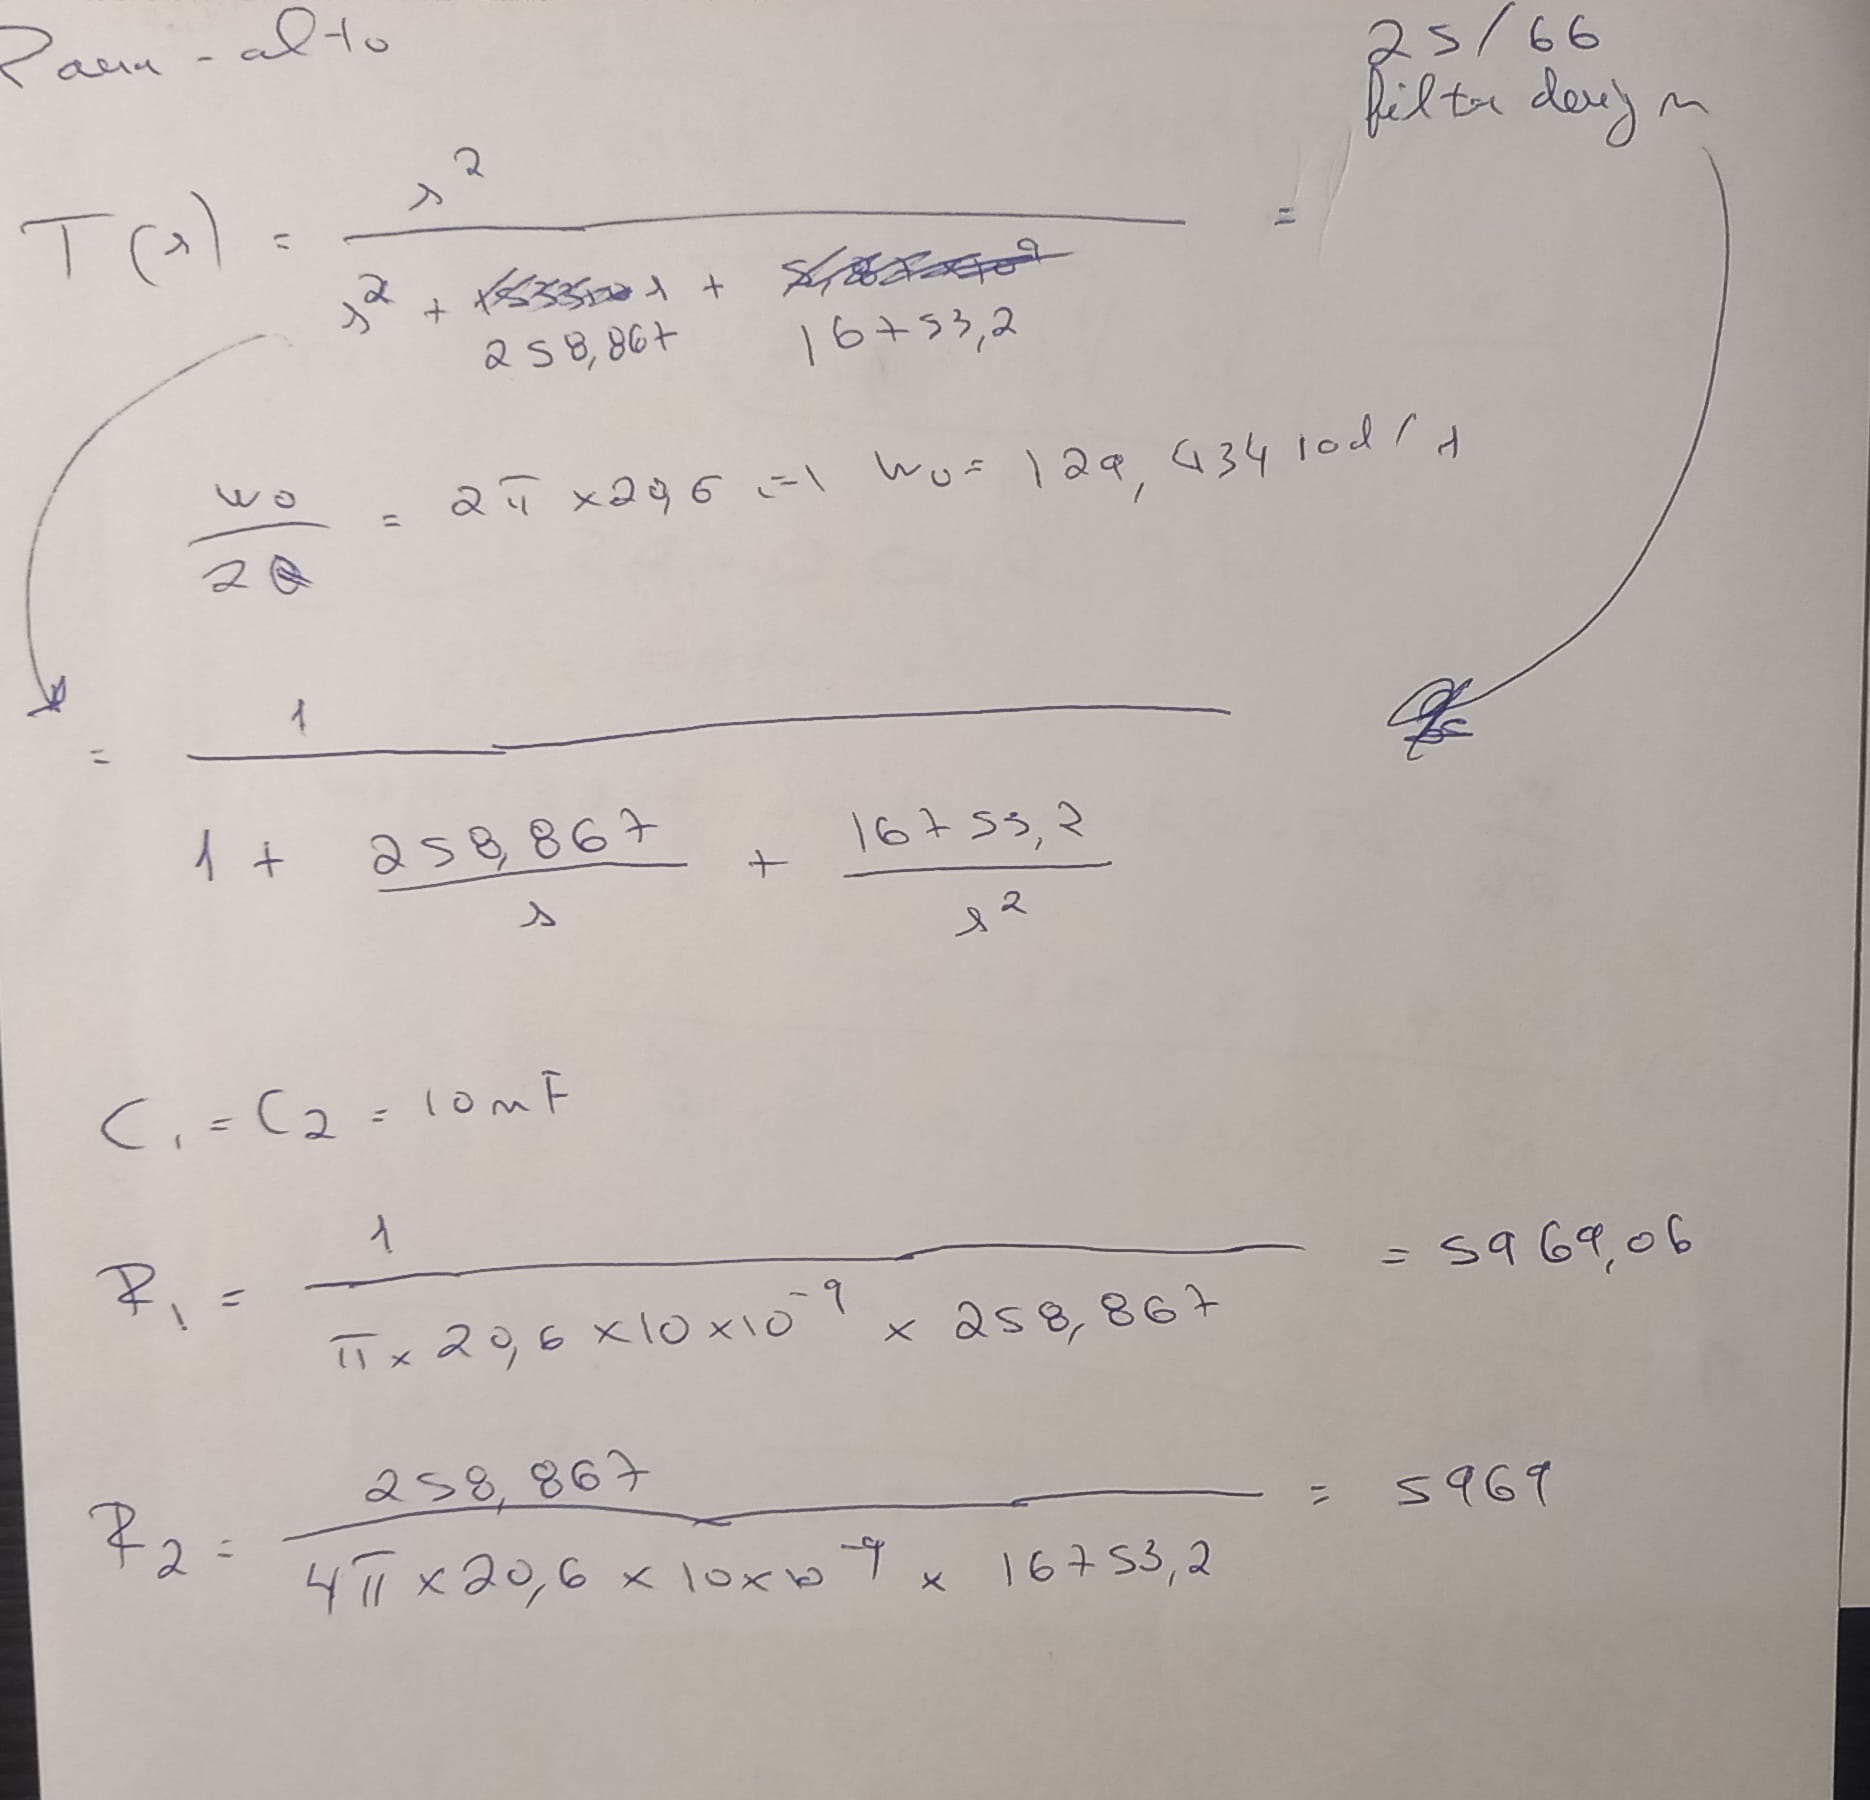 Passa-alto
25/66
filter design
T(s) = s² / (s² + 258,867 s + 16753,2) =
w0 / 2 = 2π × 20,6 (=) w0 = 129,434 rad/s
= 1 / (1 + 258,867/s + 16753,2/s²)
C1 = C2 = 10nF
R1 = 1 / (π × 20,6 × 10 × 10⁻⁹ × 258,867) = 5969,06
R2 = 258,867 / (4π × 20,6 × 10×10⁻⁹ × 16753,2) = 5969